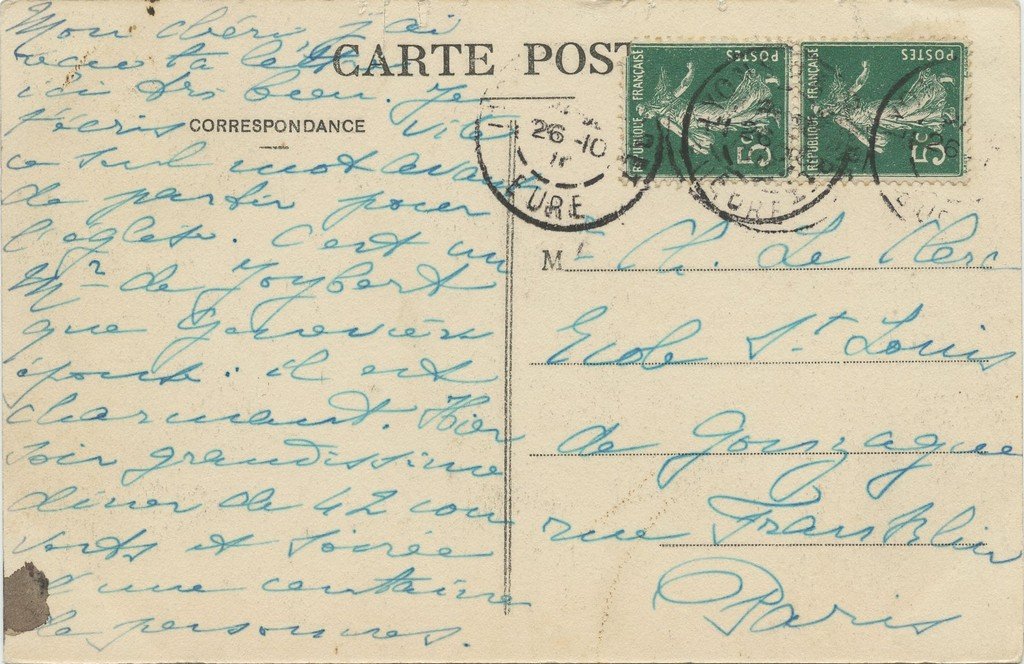 CARTE POST
CORRESPONDANCE
Mon chéri, j'ai
reçu ta lettre
ici très bien. Je
t'écris vite
ce seul mot avant
de partir pour
l'église. C'est un
Mr de Joybert
que Geneviève
épouse. il est
charmant. Hier
soir grandissime
diner de 42 cou
verts et soirée
d'une centaine
de personnes.
REPUBLIQUE FRANÇAISE
POSTES
5c
REPUBLIQUE FRANÇAISE
POSTES
5c
26-10
EURE
M Ch. Le Clerc
Ecole St Louis
de Gonzague
rue Franklin
Paris